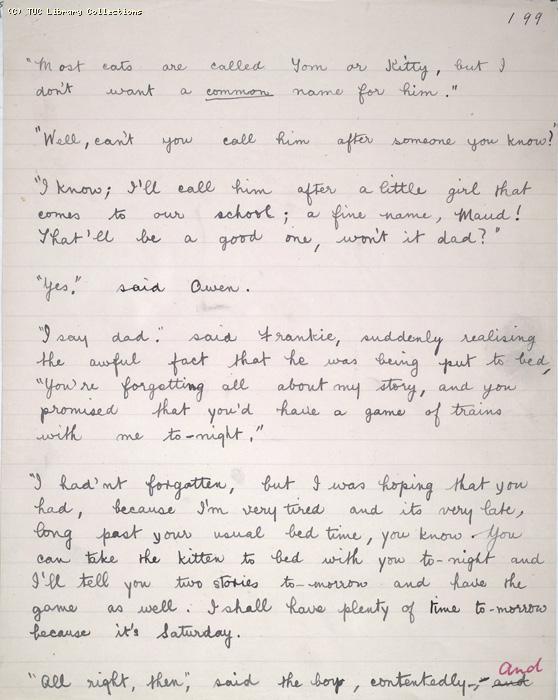 (C) TUC Library Collections
199
"Most cats are called Tom or Kitty, but I
don't want a common name for him."
"Well, can't you call him after someone you know?
"I know; I'll call him after a little girl that
comes to our school; a fine name, Maud!
That'll be a good one, won't it dad?"
"Yes." said Owen.
"I say dad." said Frankie, suddenly realising
the awful fact that he was being put to bed,
"You're forgetting all about my story, and you
promised that you'd have a game of trains
with me to-night."
"I had'nt forgotten, but I was hoping that you
had, because I'm very tired and its very late,
long past your usual bed time, you know. You
can take the kitten to bed with you to-night and
I'll tell you two stories to-morrow and have the
game as well. I shall have plenty of time to-morrow
because it's Saturday.
And
"All right, then", said the boy, contentedly,- and